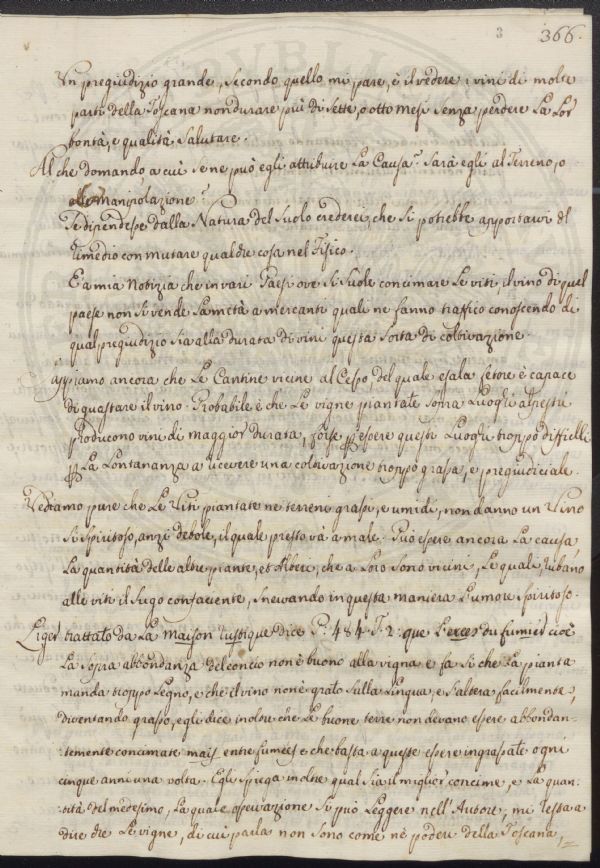 3 366.
Un pregiudizio grande, secondo quello mi pare, è il vedere i vini di molte
parti della Toscana non durare più di sette, o otto mesi senza perdere La Lor
bontà, e qualità salutare.
Al che domando a cui se ne può egli attribuire La Causa? Sarà egli al Terreno, o
manipolazione?
Se dipendesse dalla Natura del Suolo crederei, che si potrebbe apportarvi del
rimedio con mutare qualche cosa nel Fisico.
È a mia Notizia che in vari Paesi ove si suole concimare Le viti, il vino di quel
paese non si vende La metà a mercanti quali ne fanno traffico conoscendo di
qual pregiudizio sia alla durata di vini questa sorta di coltivazione.
Sappiamo ancora che Le Cantine vicine al Cesso, del quale esala fetore è capace
di guastare il vino. Probabile è che Le vigne piantate sopra Luoghi alpestri
producono vini di maggior durata, forse essere questi Luoghi troppo difficili
La Lontananza a ricevere una coltivazione troppo grassa, e pregiudiciale.
Vediamo pure che Le Viti piantate ne terreni grassi, e umidi, non danno un Vino
si spiritoso, anzi debole, il quale presto và a male. Può essere ancora La causa
La quantità delle altre piante, et Alberi, che a Loro sono vicini, Le quali, rubano
alle viti il sugo confaciente, snervando in questa maniera L'umore spiritoso.
Liger trattato da La maison rustique dice P: 484 T. 2: que L'exces du fumier cioè
La sopra abbondanza del concio non è buono alla vigna e fa si che La pianta
manda troppo Legno, e che il vino non è grato sulla Lingua, e s'altera facilmente,
diventando grasso, egli dice inoltre che Le buone terre non devano essere abbondan-
temente concimate mais entre fumées e che basta a queste essere ingrassate ogni
cinque anni una volta. Egli spiega inoltre qual sia il miglior concime, e La quan-
tità del medesimo, La quale operazione si può Leggere nell'Autore, mi resta a
dire che Le vigne, di cui parla non sono come nè poderi della Toscana,